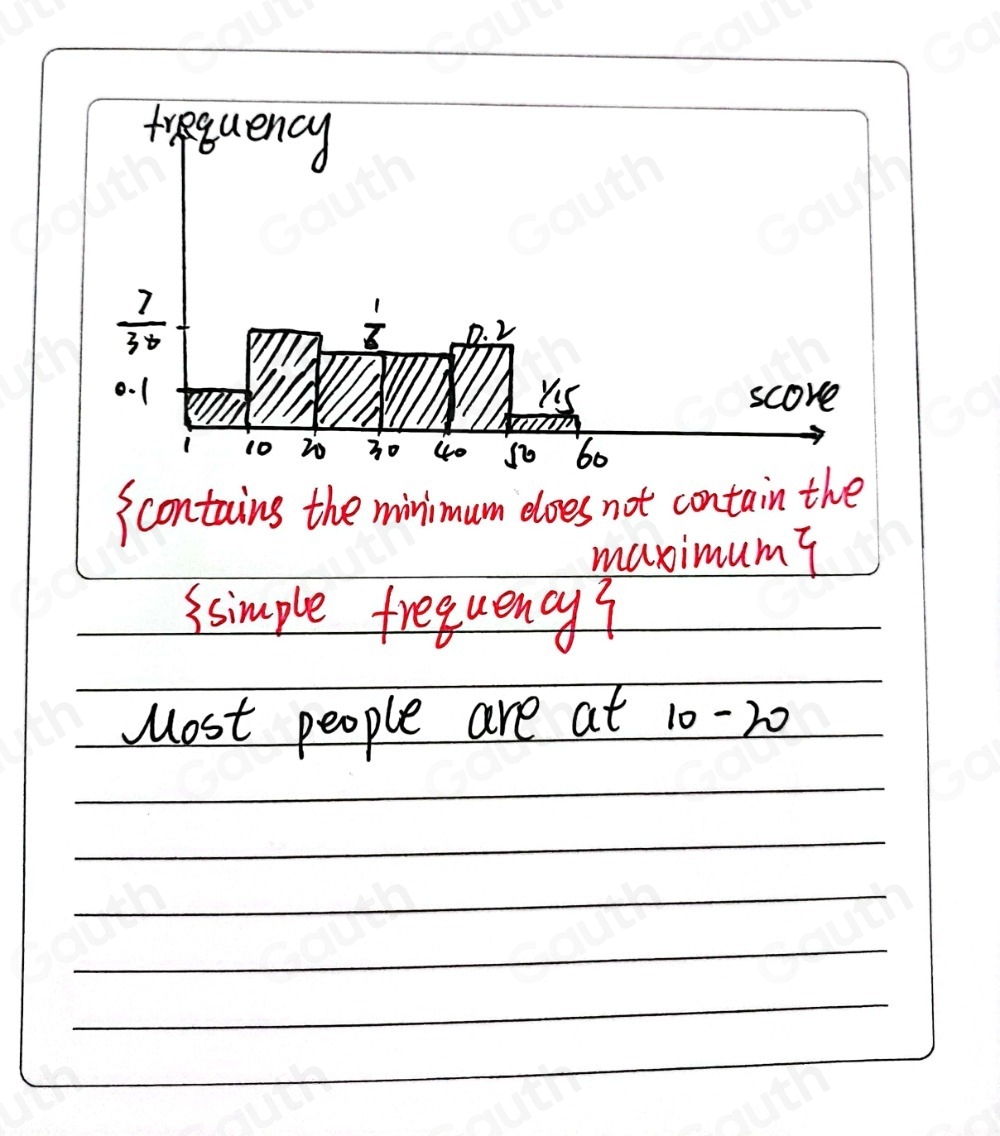 frequency
7
30
1
6
0.2
0.1
1/15
score
1 10 20 30 40 50 60
{contains the minimum does not contain the
maximum}
{simple frequency}
Most people are at 10-20